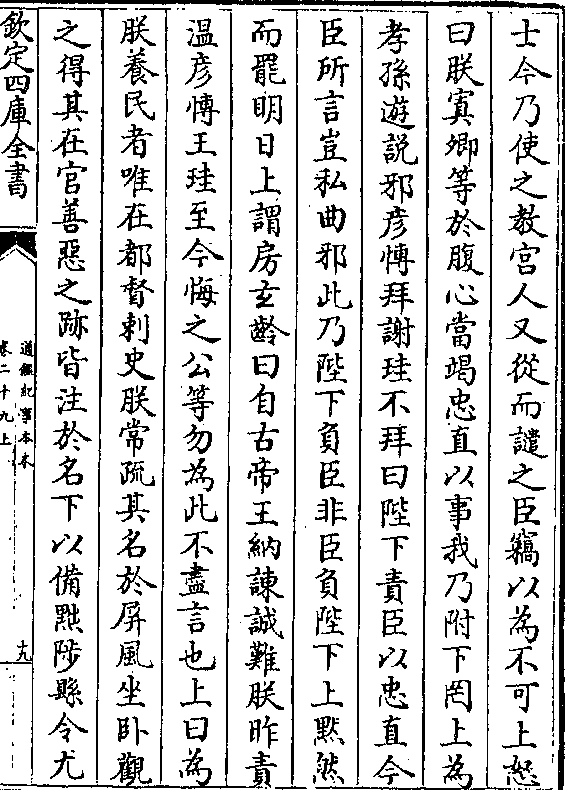 士今乃使之教宮人又從而譴之臣竊以為不可上怒
曰朕寘卿等於腹心當竭忠直以事我乃附下罔上為
孝孫遊説邪彦愽拜謝珪不拜曰陛下責臣以忠直今
臣所言豈私曲邪此乃陛下負臣非臣負陛下上黙然
而罷明日上謂房玄齡曰自古帝王納諫誠難朕昨責
温彦愽王珪至今悔之公等勿為此不盡言也上曰為
朕養民者唯在都督刺史朕常疏其名於屏風坐卧觀
之得其在官善惡之跡皆注於名下以備黜陟縣令尤
欽定四庫全書
通鑑紀事本末
卷二十九上
十九